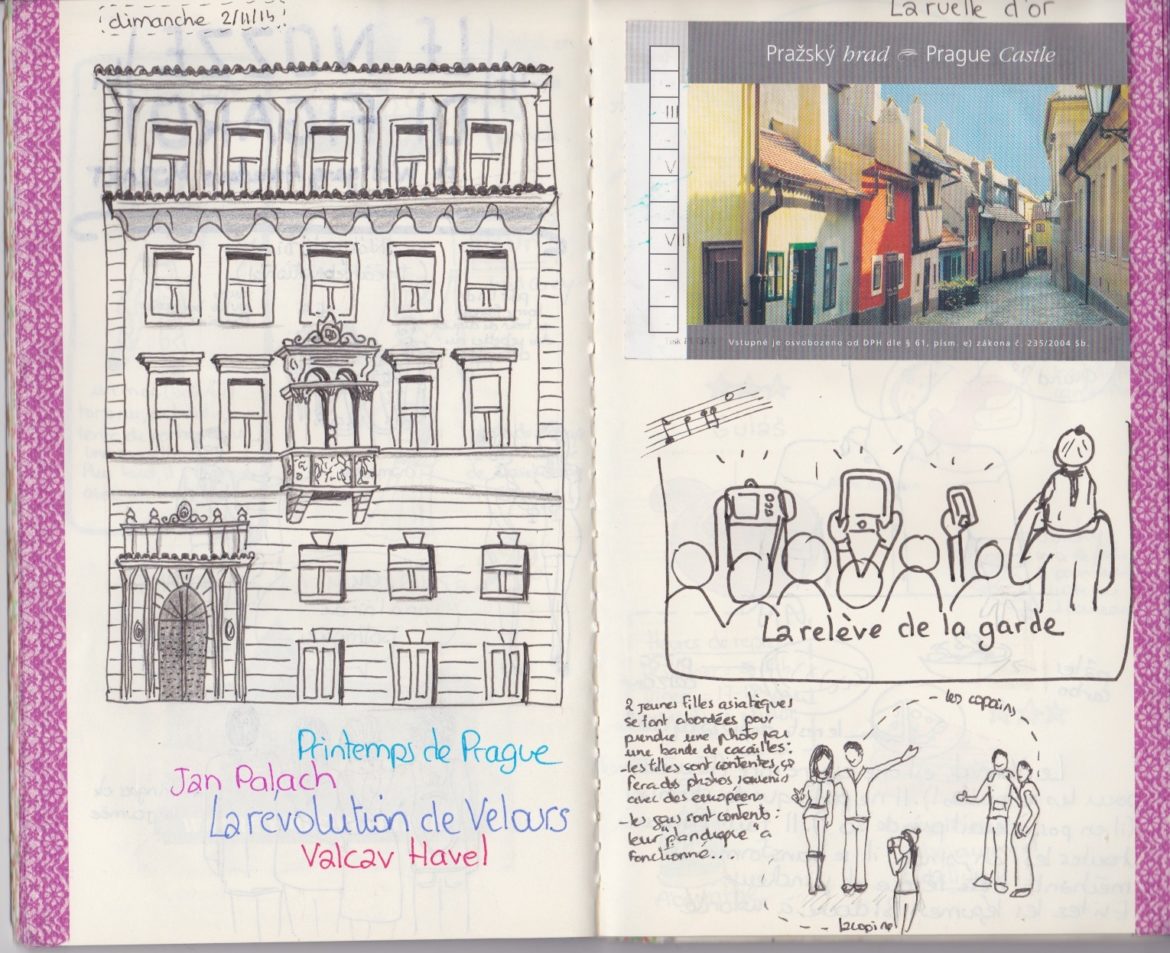 dimanche 2/11/15
Printemps de Prague
Jan Palach
La révolution de Velours
Valcav Havel
La ruelle d'or
Pražský hrad Prague Castle
-
III
-
V
-
VII
-
-
Vstupné je osvobozeno od DPH dle § 61, písm. e) zákona č. 235/2004 Sb.
La relève de la garde
2 jeunes filles asiatiques
se font abordées pour
prendre une photo par
une bande de cacailles:
-les filles sont contentes, ça
fera des photos souvenirs
avec des européens
-les gars sont contents:
leur "plan drague" a
fonctionné...
- les copains
la copine